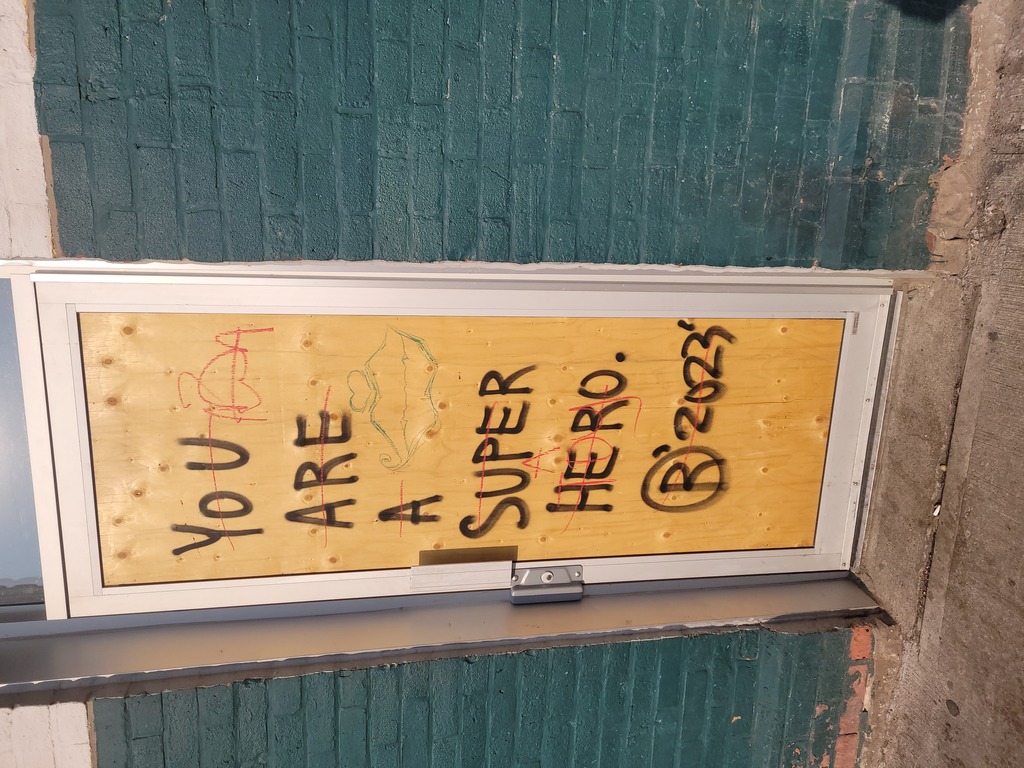 YOU
ARE
A
SUPER
HERO.
B' 2023'